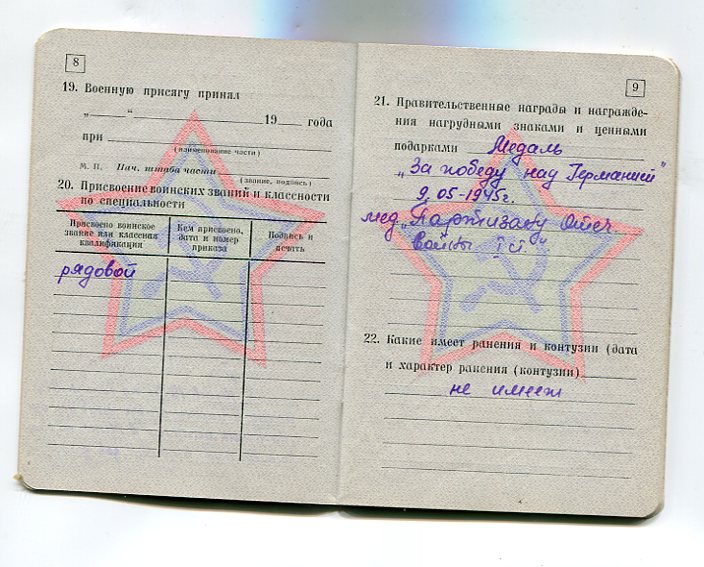 8
19. Военную присягу принял
„ “ 19 года
при
(наименование части)
М. П. Нач. штаба части
(звание, подпись)
20. Присвоение воинских званий и классности
по специальности
Присвоено воинское
звание или классная
квалификация
Кем присвоено,
дата и номер
приказа
Подпись и
печать
рядовой
9
21. Правительственные награды и награжде-
ния нагрудными знаками и ценными
подарками Медаль
„За победу над Германией"
9.05-1945г.
мед. „Партизану Отеч.
войны II ст"
22. Какие имеет ранения и контузии (дата
и характер ранения (контузии)
не имеет